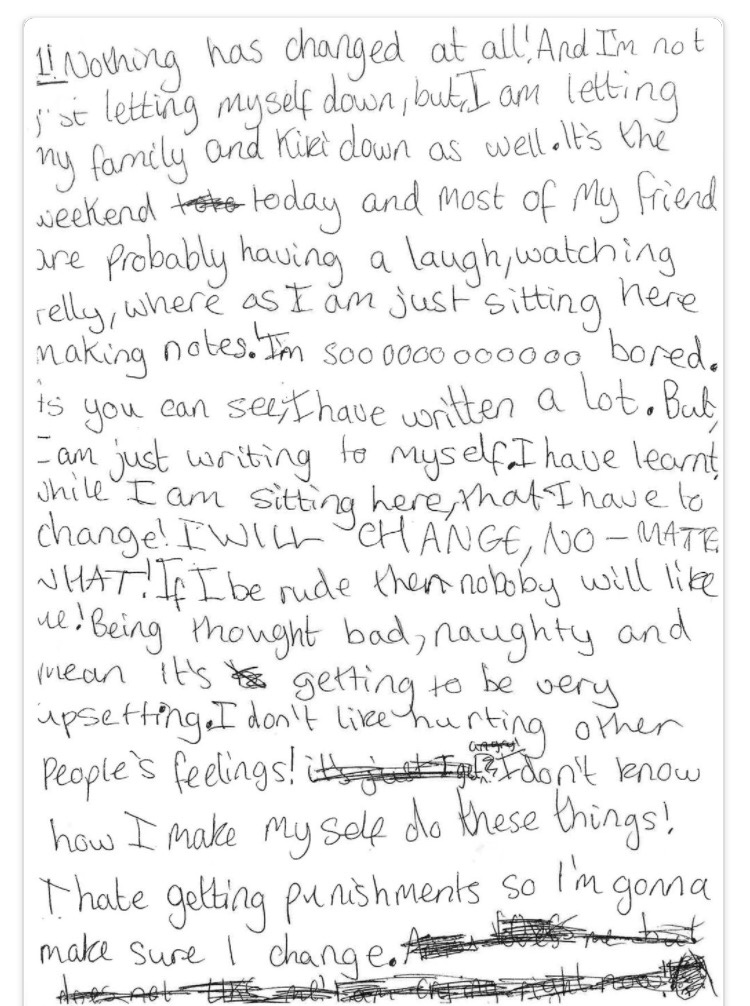 1! Nothing has changed at all! And I'm not
just letting myself down, but, I am letting
my family and Kiki down as well. It's the
weekend today and most of my friend
are probably having a laugh, watching
telly, where as I am just sitting here
making notes.! I'm sooooooooooooo bored.
As you can see, I have written a lot. But,
I am just writing to myself. I have learnt
while I am sitting here, that I have to
change! I WILL CHANGE, NO - MATTE
WHAT! If I be rude then noboby will like
me! Being thought bad, naughty and
mean it's getting to be very
upsetting. I don't like hurting other
People's feelings! it's just I get angry! I don't know
how I make my self do these things!
I hate getting punishments so I'm gonna
make sure I change. me but
does not like me! I am crying right now